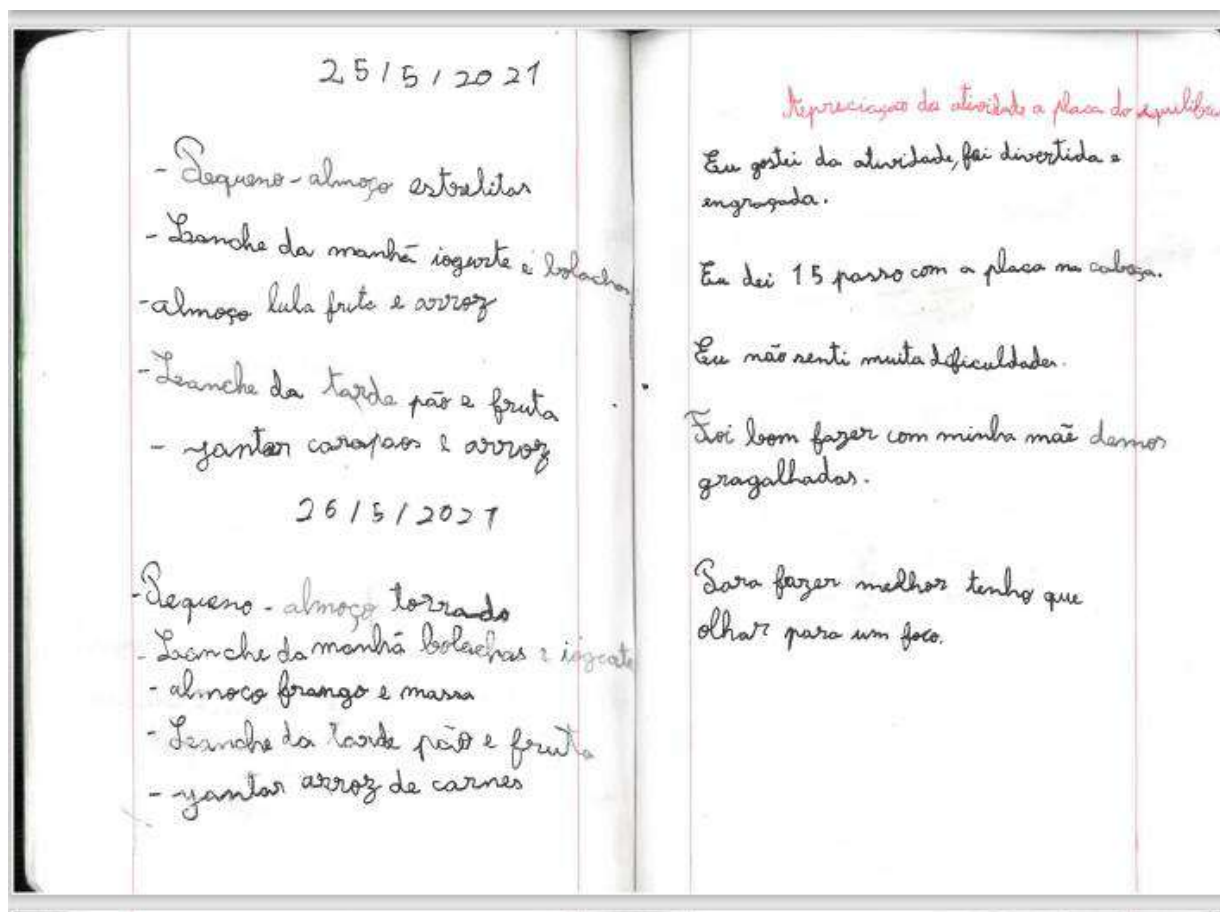 25/5/2021
- Pequeno-almoço estrelitas
- Lanche da manhã iogurte e bolachas
- almoço lula frita e arroz
- Lanche da tarde pão e fruta
- jantar carapaos e arroz
26/5/2021
- Pequeno-almoço torrado
- Lanche da manhã bolachas e iogurte
- almoço frango e massa
- Lanche da tarde pão e fruta
- jantar arroz de carnes
Apreciação da atividade a placa do equilibrio
Eu gostei da atividade, foi divertida e
engraçada.
Eu dei 15 passo com a placa na cabeça.
Eu não senti muita dificuldades.
Foi bom fazer com minha mãe demos
gragalhadas.
Para fazer melhor tenho que
olhar para um foco.